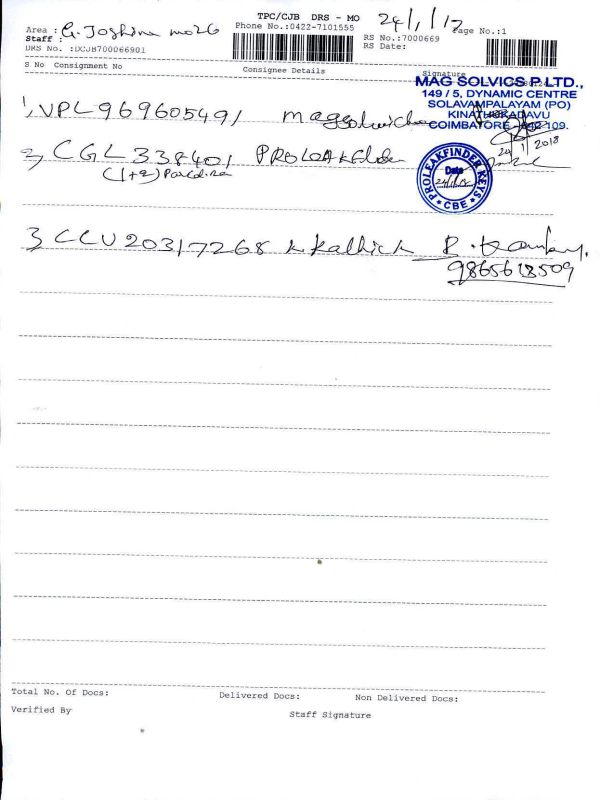 TPC/CJB DRS - MO 24/1/17
Area : G. Joshina mo26 Phone No.:0422-7101555 RS No.:7000669 Page No.:1
Staff : RS Date:
DRS No. :DCJB700066901
S No Consignment No Consignee Details Signature
MAG SOLVICS P.LTD.,
149 / 5, DYNAMIC CENTRE
SOLAVAMPALAYAM (PO)
KINATHUKADAVU
COIMBATORE - 642 109.
1, VPL969605491
24/1/2018
2, CGL338401
(1+2)
PROLEAKFINDER KEYS
Date
24/1/18
* CBE *
3, CCU20317268 K. Kathick
9865618509
Total No. Of Docs: Delivered Docs: Non Delivered Docs:
Verified By Staff Signature